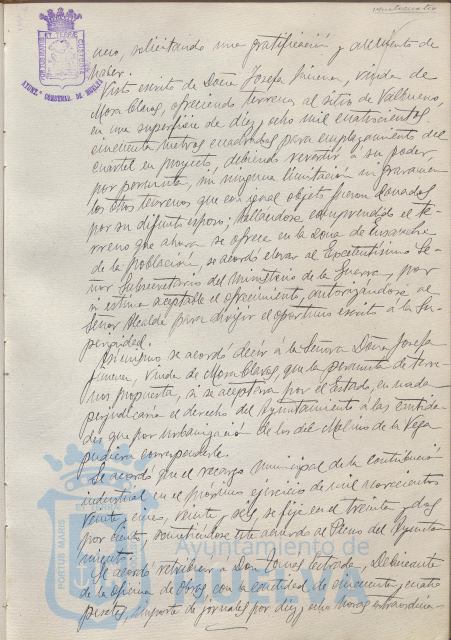 nero, solicitando una gratificación y aumento de
haber.
Visto escrito de Doña Josefa Jimenez, viuda de
Mora Claros, ofreciendo terreno al sitio de Valbueno,
en una superficie de diez y ocho mil cuatrocientos
cincuenta metros cuadrados para emplazamiento del
cuartel en proyecto, debiendo revertir a su poder,
por permuta, sin ninguna limitación ni gravamen
los otros terrenos que con igual objeto fueron donados
por su difunto esposo; hallandose comprendido el te-
rreno que ahora se ofrece en la Zona de Ensanche
de la población, se acordó elevar al Excelentísimo Se-
ñor Subsecretario del Ministerio de la Guerra, por
si estima aceptable el ofrecimiento, autorizándose al
Señor Alcalde para dirigir el oportuno escrito á la Su-
perioridad.
Asimismo se acordó decir á la Señora Doña Josefa
Jimenez, viuda de Mora Claros, que la permuta de terre-
nos propuesta, si se aceptara por el Estado, en nada
perjudicaría el derecho del Ayuntamiento á las entida-
des que por urbanización de los del Molino de la Vega
pudiera corresponderle.
Se acordó que el recargo municipal de la contribución
industrial en el próximo ejercicio de mil novecientos
veinte y cinco, veinte y seis se fije en el treinta y dos
por ciento, sometiéndose este acuerdo al Pleno del Ayunta-
miento.
Se acordó retribuir a Don Tomas Estrada, Delineante
de la oficina de Obras, con la cantidad de cincuenta y cuatro
pesetas, importe de jornales por diez y ocho horas extraordina-
AYUNT.º CONSTNAL. DE HUELVA
PORTUS MARIS
Ayuntamiento de
HUELVA